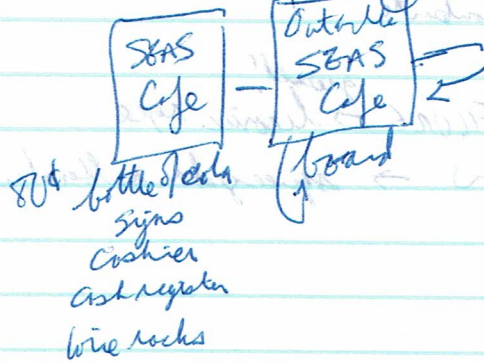 SEAS
Cafe
Outside
SEAS
Cafe
board
80¢ bottle of cola
signs
cashier
cash register
wire racks